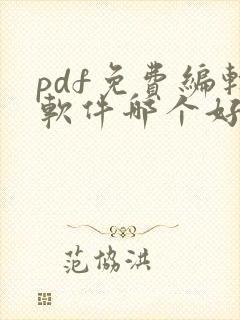 pdf免費編輯
軟件哪个好
范協洪